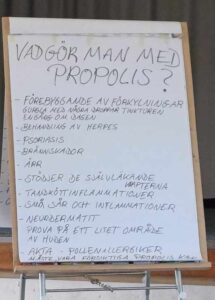 VAD GÖR MAN MED
PROPOLIS?
- FÖREBYGGANDE AV FÖRKYLNINGAR
GURGLA MED NÅGRA DROPPAR TINKTUREN
ENGÅNG OM DAGEN
- BEHANDLING AV HERPES
- PSORIASIS
- BRÄNNSKADOR
- ÄRR
- STÖDJER DE SJÄLVLÄKANDE
KRAFTERNA
- TANDKÖTTINFLAMMATIONER
- SMÅ SÅR OCH INFLAMMATIONER
- NEURODERMATIT
PROVA PÅ ETT LITET OMRÅDE
AV HUDEN
- AKTA - POLLENALLERGIKER
MÅSTE VARA FÖRSIKTIGA PROPOLIS KAN